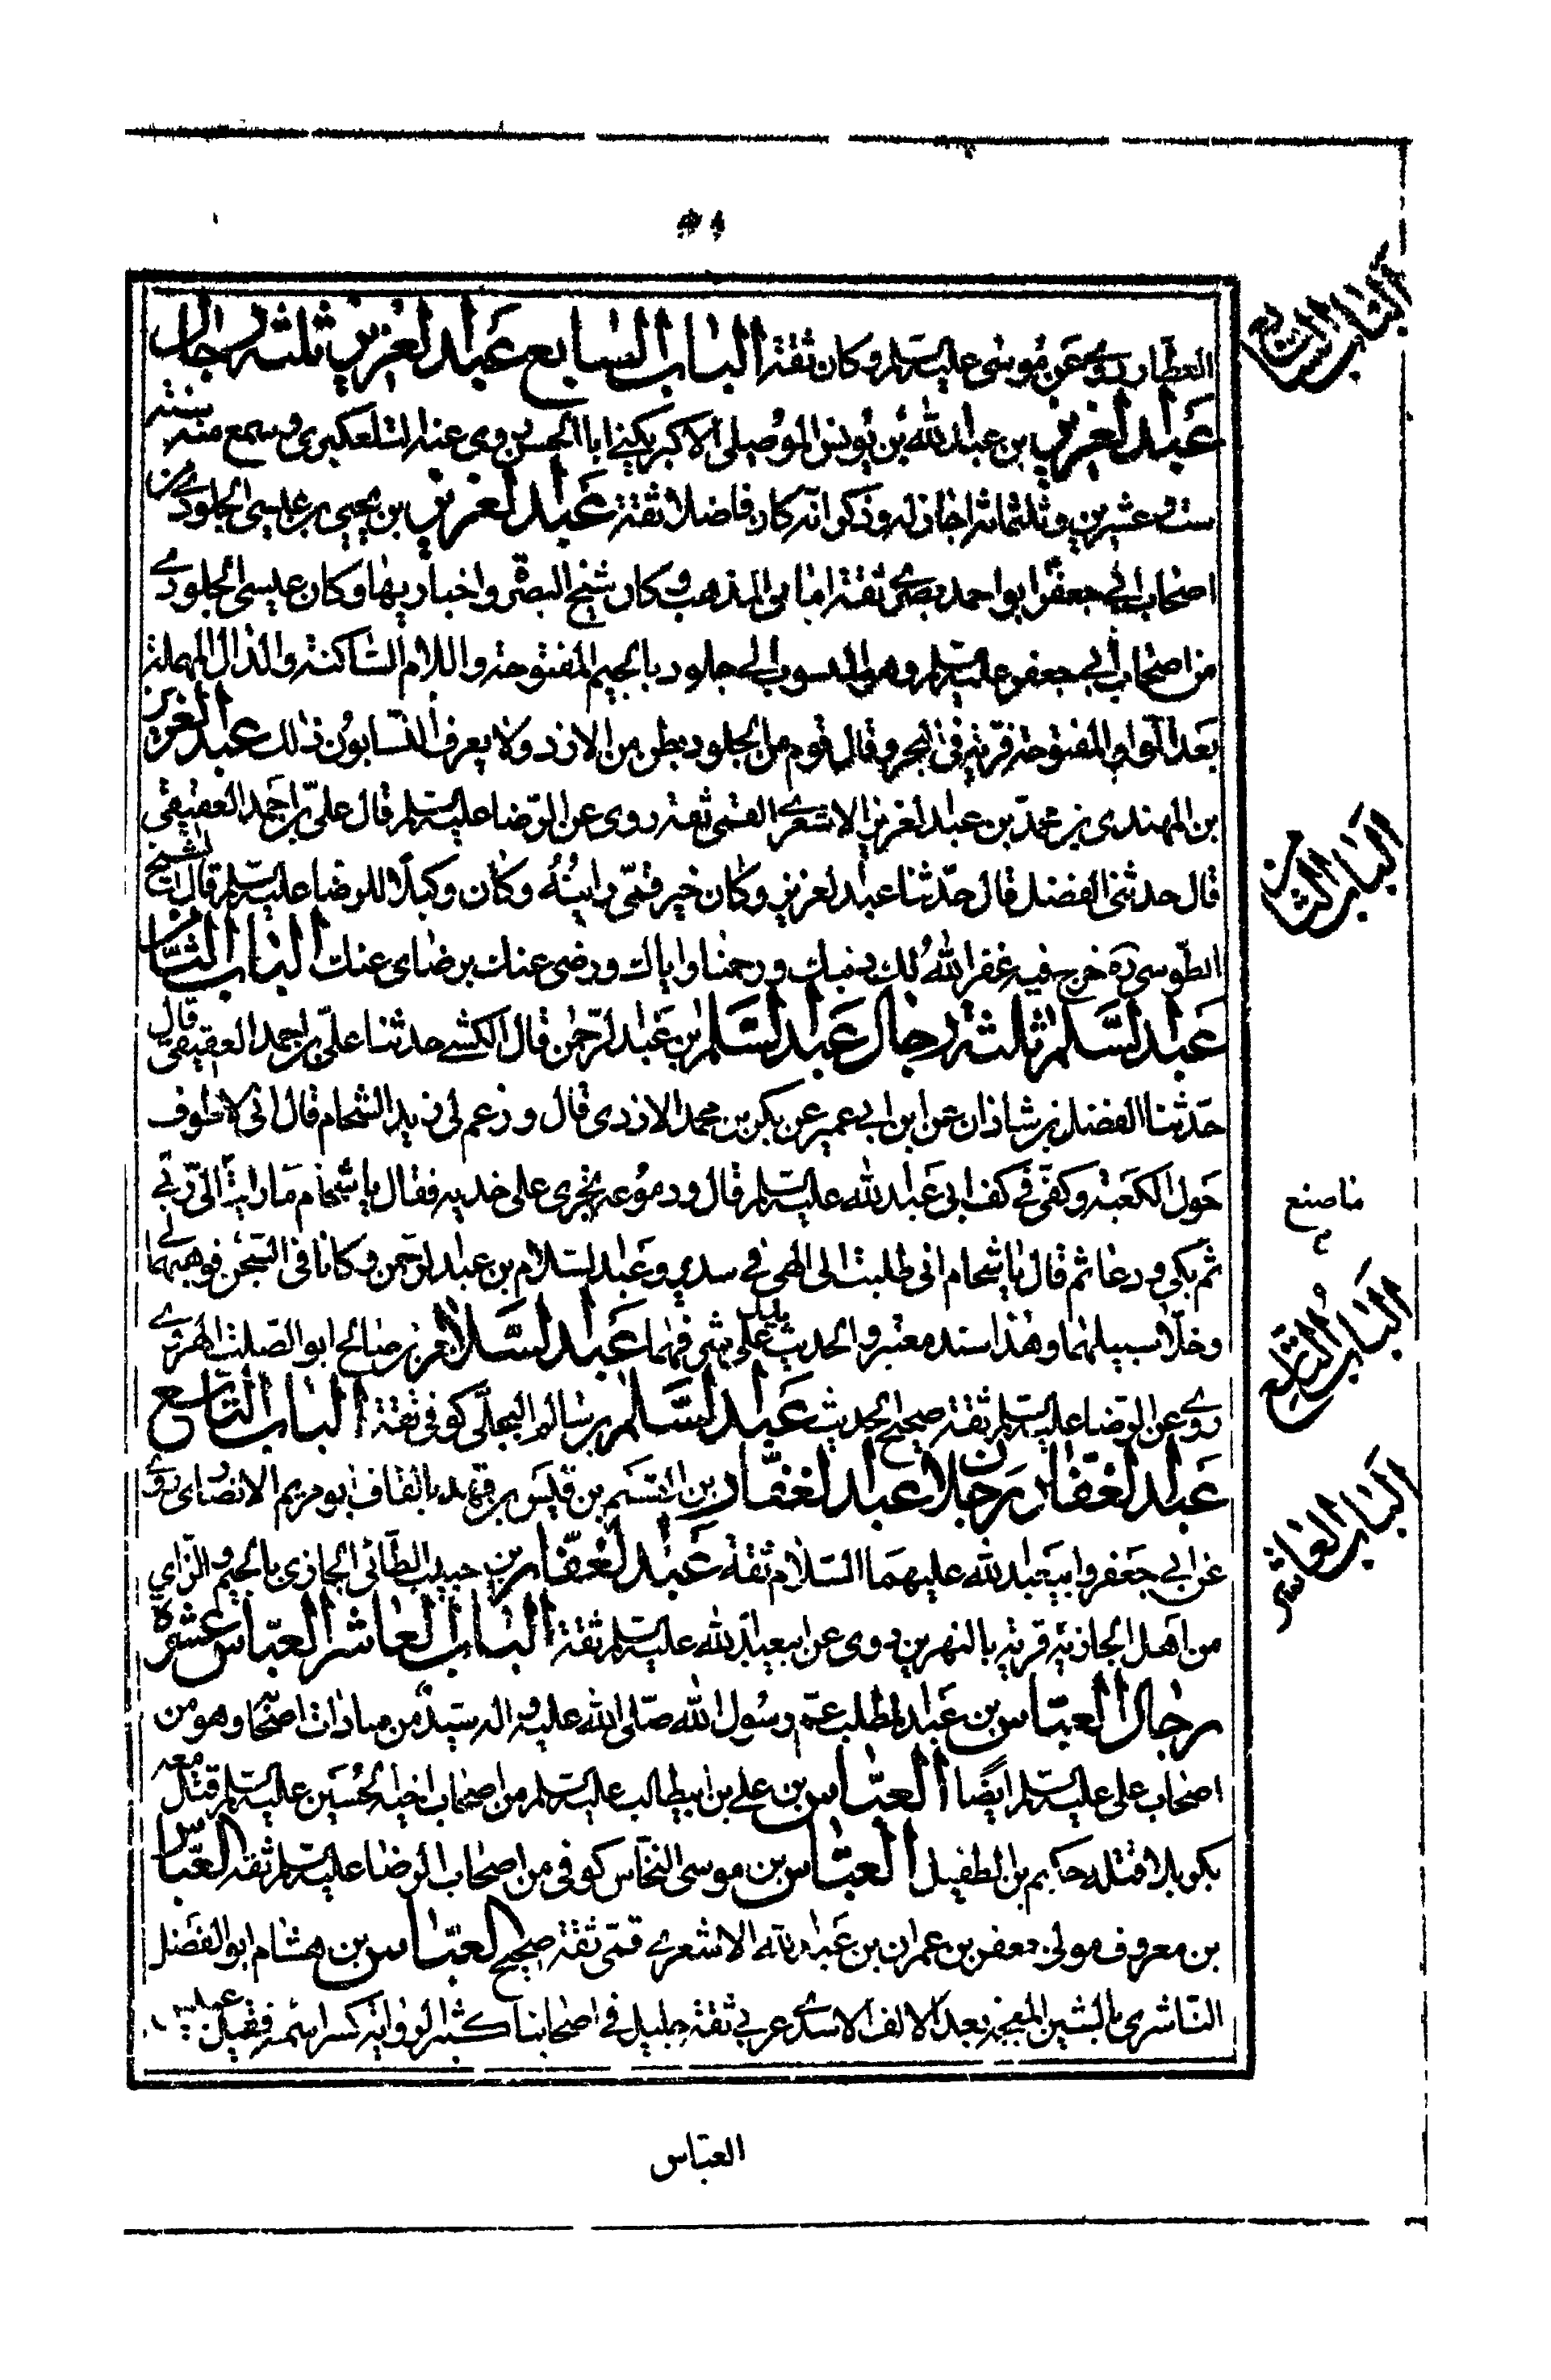 العطار روى عن موسى عليه السلم وكان ثقة الباب السابع عبد العزيز ثلثة رجال
عبد العزيز بن عبد الله بن يونس الموصلى الاكبر يكنى ابا الحسن روى عنه التلعكبرى وسمع منه سنة
ست وعشرين وثلثمائة اجاز له وذكر انه كان فاضلا ثقة عبد العزيز بن يحيى بن عيسى الجلودى من
اصحاب ابى جعفر ابو احمد بصرى ثقة امامى المذهب وكان شيخ البصرة واخباريها وكان عيسى الجلودى
من اصحاب ابى جعفر عليه السلم وهو المنسوب الى جلود بالجيم المفتوحة واللام الساكنة والدال المهملة
بعد الواو المفتوحة قرية فى البحر وقال قوم من الجلود بطن من الازد ولا يعرف النسابون ذلك عبد العزيز
بن المهتدى بن محمد بن عبد العزيز الاشعرى القمى ثقة روى عن الرضا عليه السلم قال على بن احمد العقيقى
قال حدثنى الفضل قال حدثنا عبد العزيز وكان خير قمى رايته وكان وكيلا للرضا عليه السلم قال الشيخ
الطوسى ره خرج فيه غفر الله لك ذنبك ورحمنا واياك ورضى عنك برضاى عنك الباب الثامن
عبد السلم ثلثة رجال عبد السلم بن عبد الرحمن قال الكشى حدثنا على بن احمد العقيقى قال
حدثنا الفضل بن شاذان عن ابن ابى عمير عن بكر بن محمد الازدى قال وزعم لى زيد الشحام قال انى لاطوف
حول الكعبة وكفى فى كف ابى عبد الله عليه السلم قال ودموعه تجرى على خديه فقال يا شحام ما رايت الى ربى
ما صنع
ثم بكى ودعا ثم قال يا شحام انى طلبت الى الهى فى سدير وعبد السلام بن عبد الرحمن وكانا فى السجن فوهبهما لى
وخلا سبيلهما وهذا سند معتبر والحديث يدل على شئ فيهما عبد السلام بن صالح ابو الصلت الهروى
روى عن الرضا عليه السلم ثقة صحيح الحديث عبد السلم بن سالم البجلى كوفى ثقة الباب التاسع
عبد الغفار رجلان عبد الغفار بن القسم بن قيس بن قهد بالقاف ابو مريم الانصارى روى
عن ابى جعفر وابيعبد الله عليهما السلام ثقة عبد الغفار بن حبيب الطائى الجازى بالجيم والزاى
من اهل الجازية قرية بالنهرين روى عن ابيعبد الله عليه السلم ثقة الباب العاشر العباس عشرة
رجال العباس بن عبد المطلب عم رسول الله صلى الله عليه واله سيد من سادات اصحابه وهو من
اصحاب على عليه السلم ايضا العباس بن على بن ابيطالب عليه السلم من اصحاب اخيه الحسين عليه السلم قتل معه
بكربلا قتله حكيم بن الطفيل العباس بن موسى النخاس كوفى من اصحاب الرضا عليه السلم ثقة العباس
بن معروف مولى جعفر بن عمران بن عبد الله الاشعرى قمى ثقة صحيح العباس بن هشام ابو الفضل
الناشرى بالشين المعجمة بعد الالف الاسدى عربى ثقة جليل فى اصحابنا كثير الرواية كسر اسمه فقيل
العباس
الباب السابع
الباب الثامن
الباب التاسع
الباب العاشر